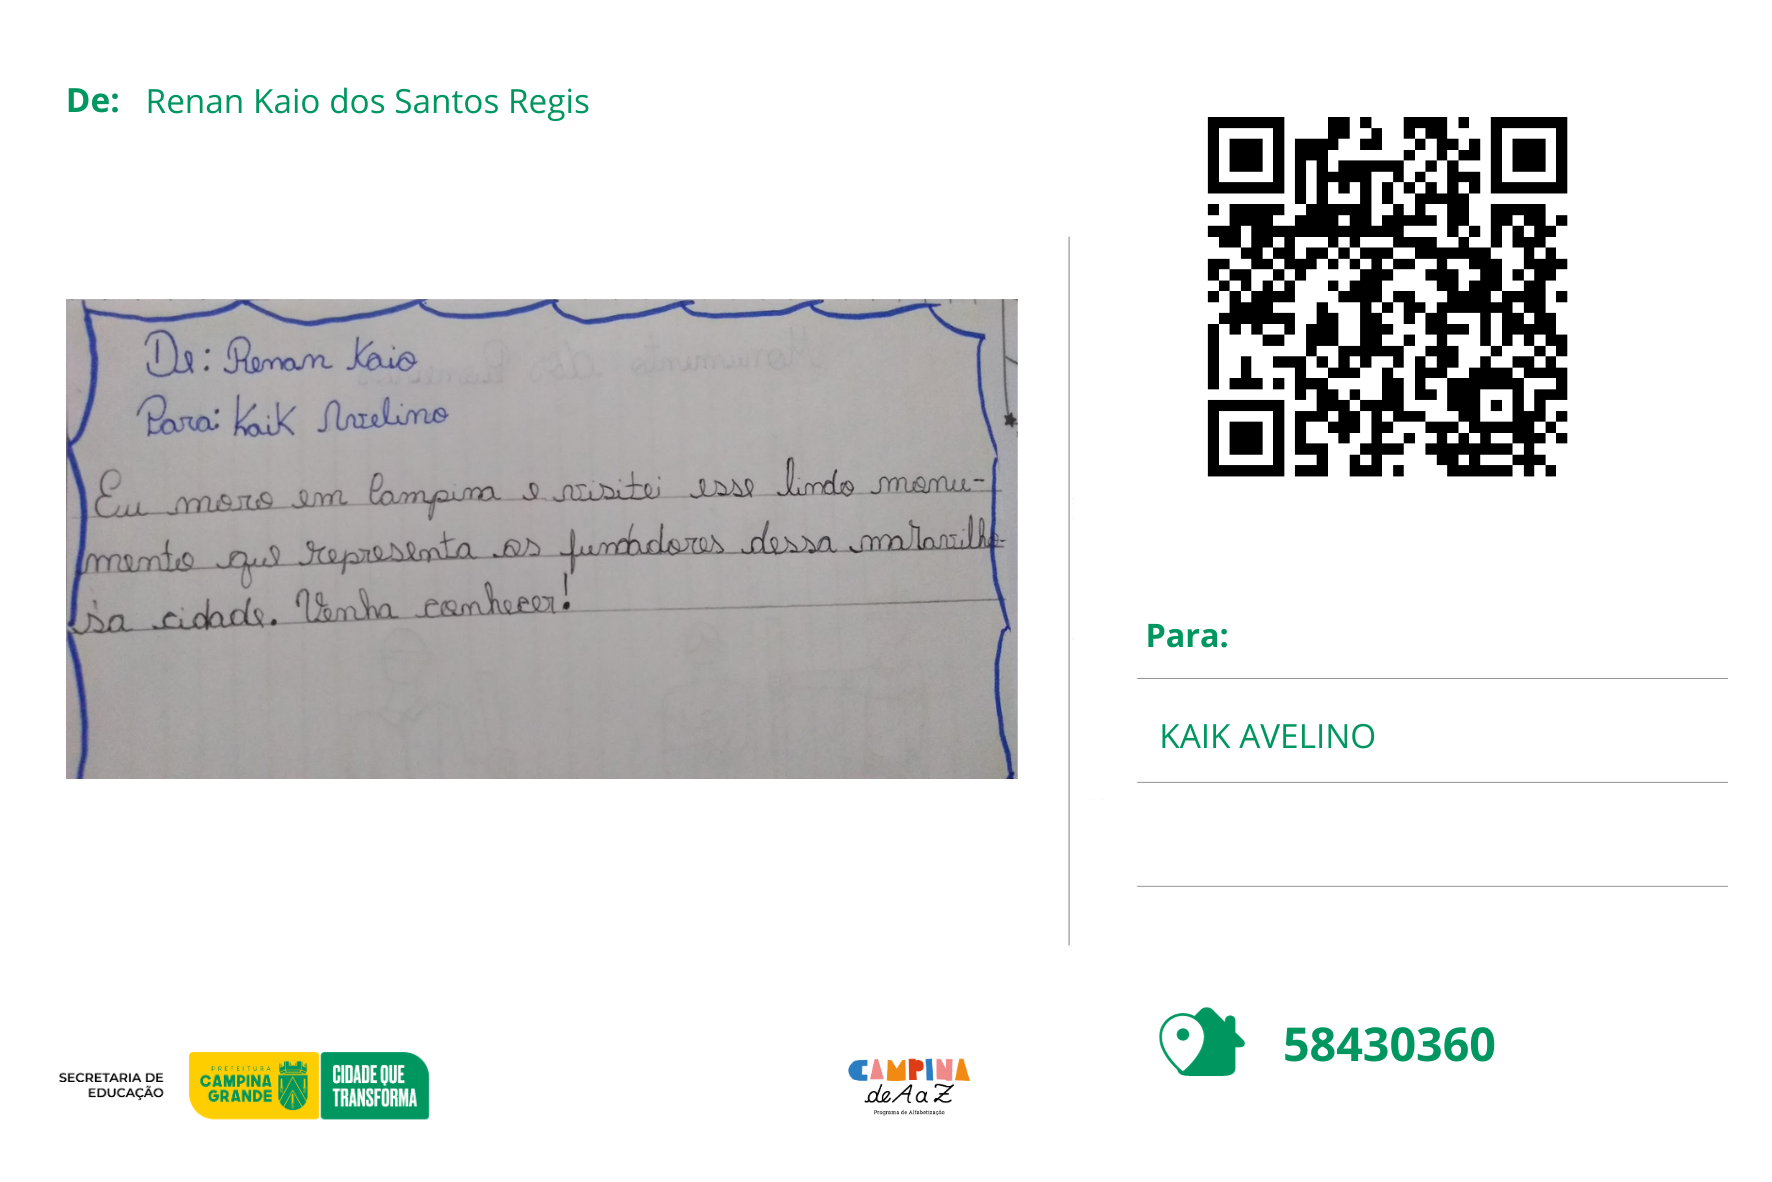 De: Renan Kaio dos Santos Regis
De: Renan Kaio
Para: Kaik Avelino
Eu moro em Campina e visitei esse lindo monu-
mento que representa os fundadores dessa maravilho-
sa cidade. Venha conhecer!
Para:
KAIK AVELINO
58430360
SECRETARIA DE
EDUCAÇÃO
PREFEITURA
CAMPINA
GRANDE
CIDADE QUE
TRANSFORMA
CAMPINA
de A a Z
Programa de Alfabetização